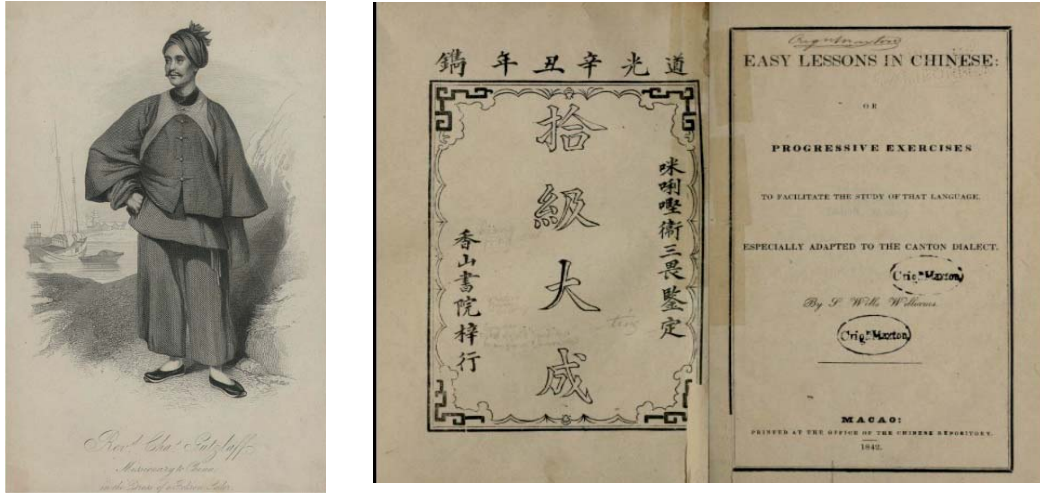 Revd. Chas. Gutzlaff,
Missionary to China
in the Dress of a Fokien Sailor.
道光辛丑年鐫
咪唎衛三畏鑒定
拾級大成
香山書院梓行
Crig. Maxton
EASY LESSONS IN CHINESE:
OR
PROGRESSIVE EXERCISES
TO FACILITATE THE STUDY OF THAT LANGUAGE,
ESPECIALLY ADAPTED TO THE CANTON DIALECT.
Crig. Maxton
By S. Wells Williams.
Crig. Maxton
MACAO:
PRINTED AT THE OFFICE OF THE CHINESE REPOSITORY.
1842.